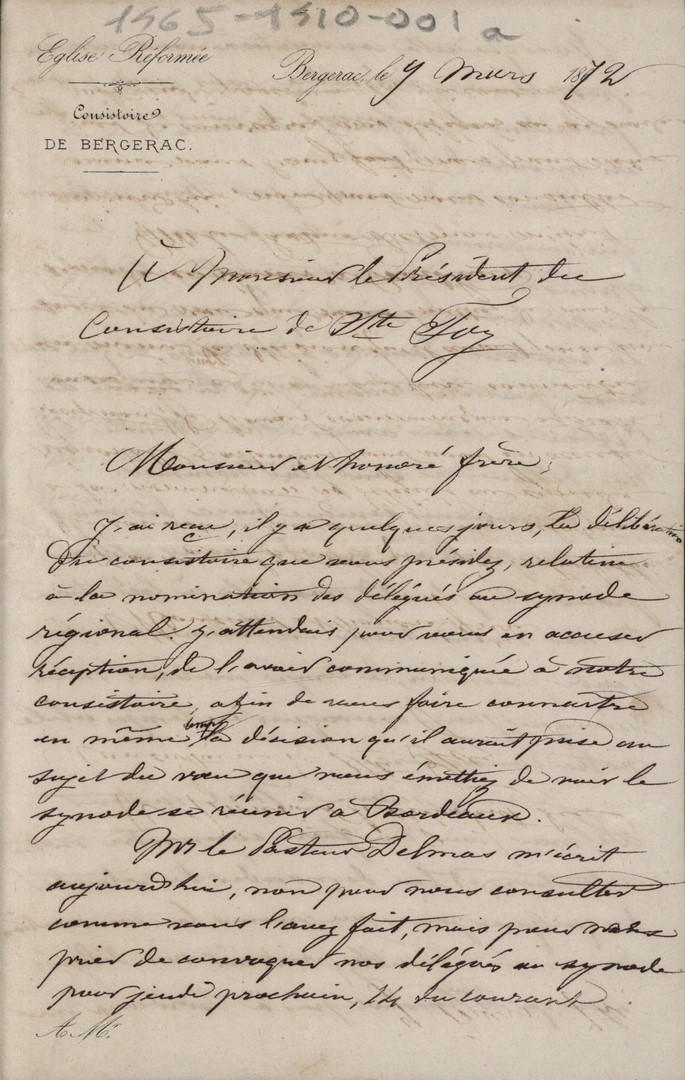 1965-1910-001a
Eglise Réformée
Consistoire
DE BERGERAC.
Bergerac, le 9 Mars 1872
À Monsieur le Président du
Consistoire de Ste Foy
Monsieur et honoré frère,
J'ai reçu, il y a quelques jours, la délibération
du consistoire que vous présidez, relative
à la nomination des délégués au synode
régional. J'attendais pour vous en accuser
réception, de l'avoir communiquée à notre
consistoire, afin de vous faire connaître
en même temps la décision qu'il aurait prise au
sujet du vœu que vous émettiez de voir le
synode se réunir à Bordeaux.
Mr le Pasteur Delmas m'écrit
aujourd'hui, non pour nous consulter
comme vous l'avez fait, mais pour nous
prier de convoquer nos délégués au synode
pour jeudi prochain, 14 du courant
A Mr